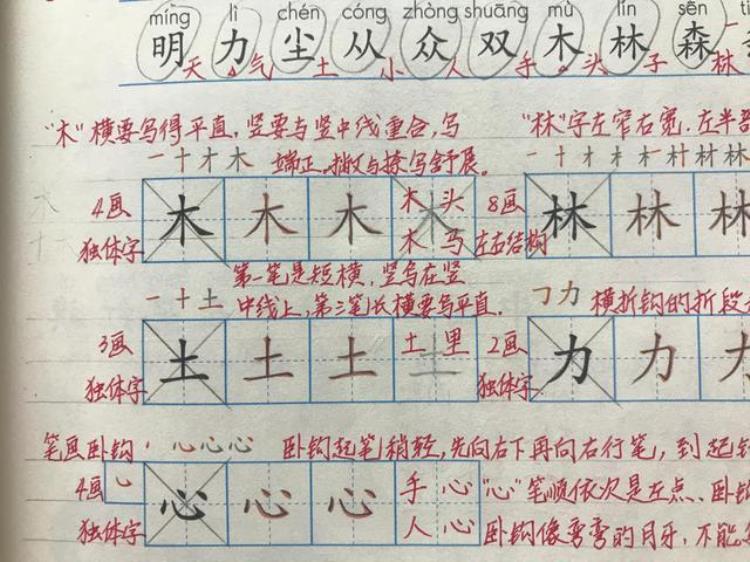 míng lì chén cóng zhòng shuāng mù lín sēn
明 力 尘 从 众 双 木 林 森
天 气 土 小 人 手 头 子 林
"木"横要写得平直,竖要与竖中线重合,写 "林"字左窄右宽.左半部
端正。撇与捺写舒展。
4画 木 木 木 木 木头 8画 林 林 林
独体字 木马 左右结构
第一笔是短横,竖写在竖
中线上,第三笔长横要写平直. 横折钩的折段
3画 土 土 土 土 土里 2画 力 力 力
独体字 独体字
笔画卧钩 心心心 卧钩起笔稍轻,先向右下再向右行笔,到起钩
4画 心 心 心 手心 "心"笔顺依次是左点、卧钩
独体字 人心 卧钩像弯弯的月牙,不能